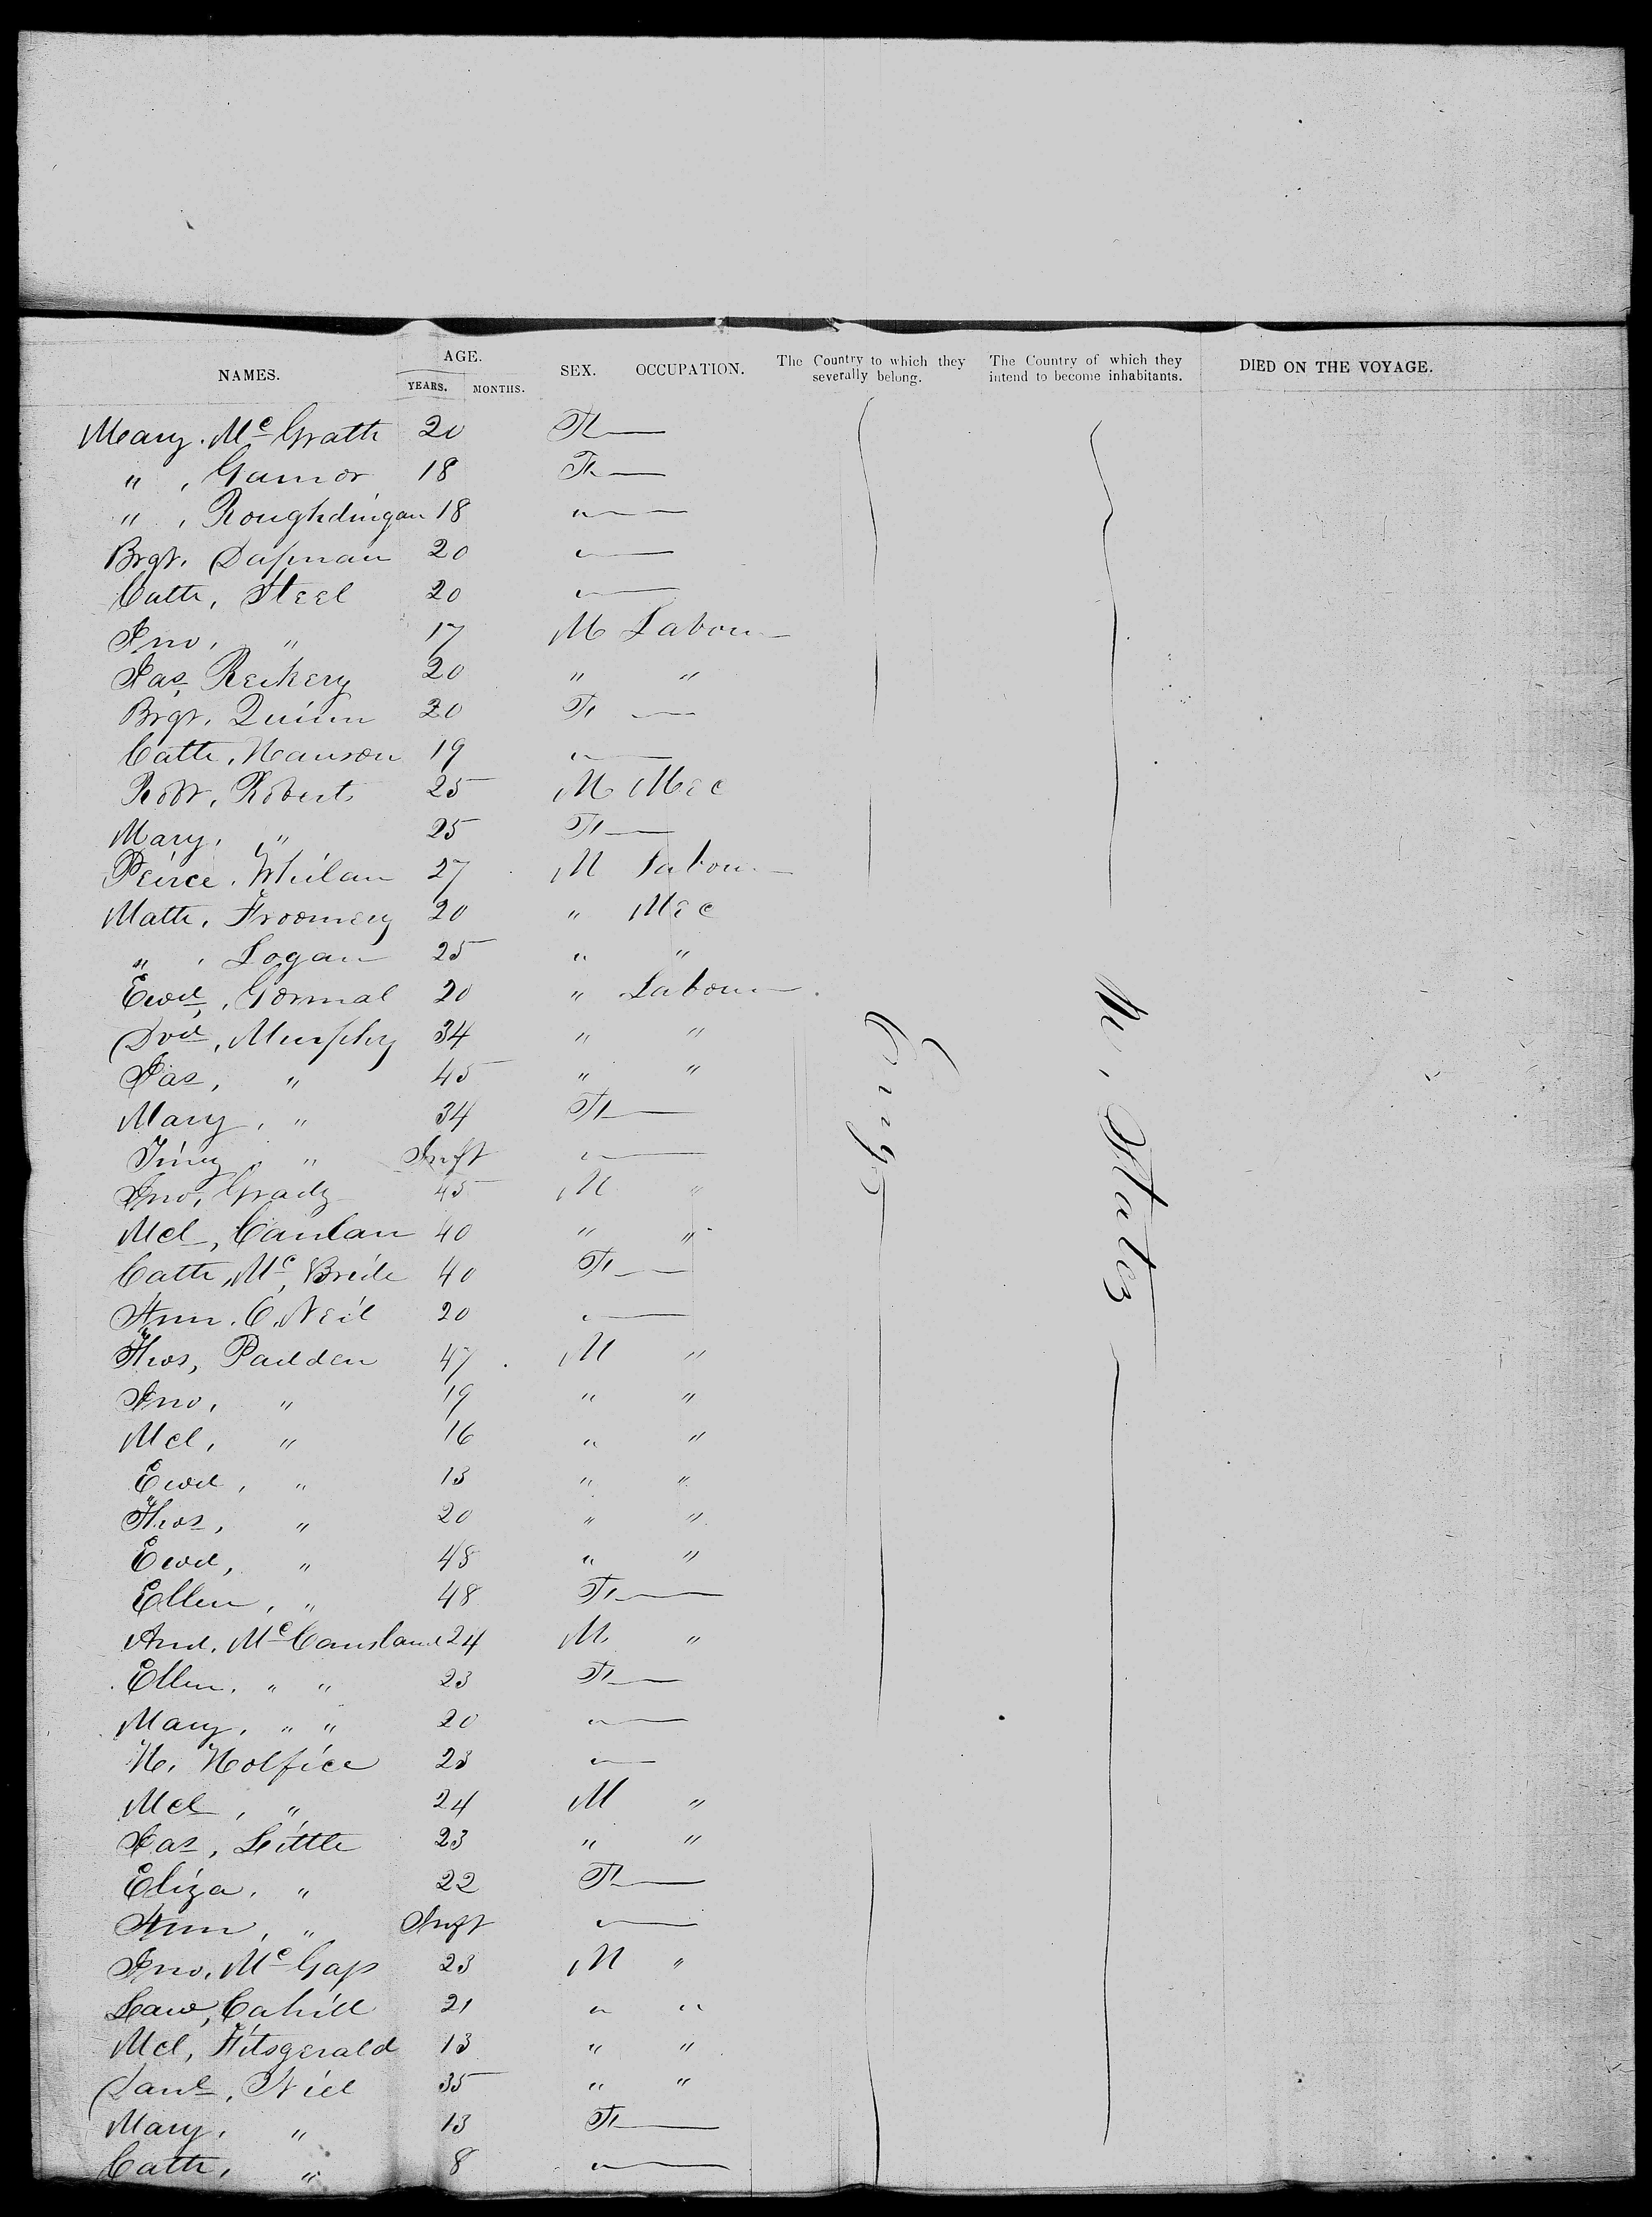 NAMES. AGE. YEARS. MONTHS. SEX. OCCUPATION. The Country to which they severally belong. The Country of which they intend to become inhabitants. DIED ON THE VOYAGE.
Mary. Mc Grath 20 F —
" , Gainor 18 F —
" , Roughdingan 18 " —
Brgt. 20 " —
Cath, Steel 20 " —
Jno, " 17 M Labour
Jas, 20 " "
Brgt, Quinn 20 F —
Cath, Hanson 19 " —
Robt, Roberts 25 M Mec
Mary, " 25 F —
Peirce, Whilan 27 M Labour
Math, 20 " Mec
" , Logan 25 " "
Ewd, Gormal 20 " Labour
Dvd, Murphy 34 " "
Jas, " 45 " "
Mary, " 34 F —
" Inft " —
Jno, Grady 45 M "
Mcl, Canlan 40 " "
Cath, Mc Bride 40 F —
Ann. O. Neil 20 " —
Thos, Padden 47 M "
Jno, " 19 " "
Mcl, " 16 " "
Ewd, " 13 " "
Thos, " 20 " "
Ewd, " 48 " "
Ellen, " 48 F —
And. Mc Causland 24 M "
Ellen, " " 23 F —
Mary, " " 20 " —
H. Holfice 23 " —
Mcl, " 24 M "
Jas, Little 23 " "
Eliza, " 22 F —
Ann, " Inft " —
Jno, Mc Gass 23 M "
Law, Cahill 21 " "
Mcl, Fitsgerald 13 " "
Danl, Niel 35 " "
Mary, " 13 F —
Cath, " 8 " —
U. States